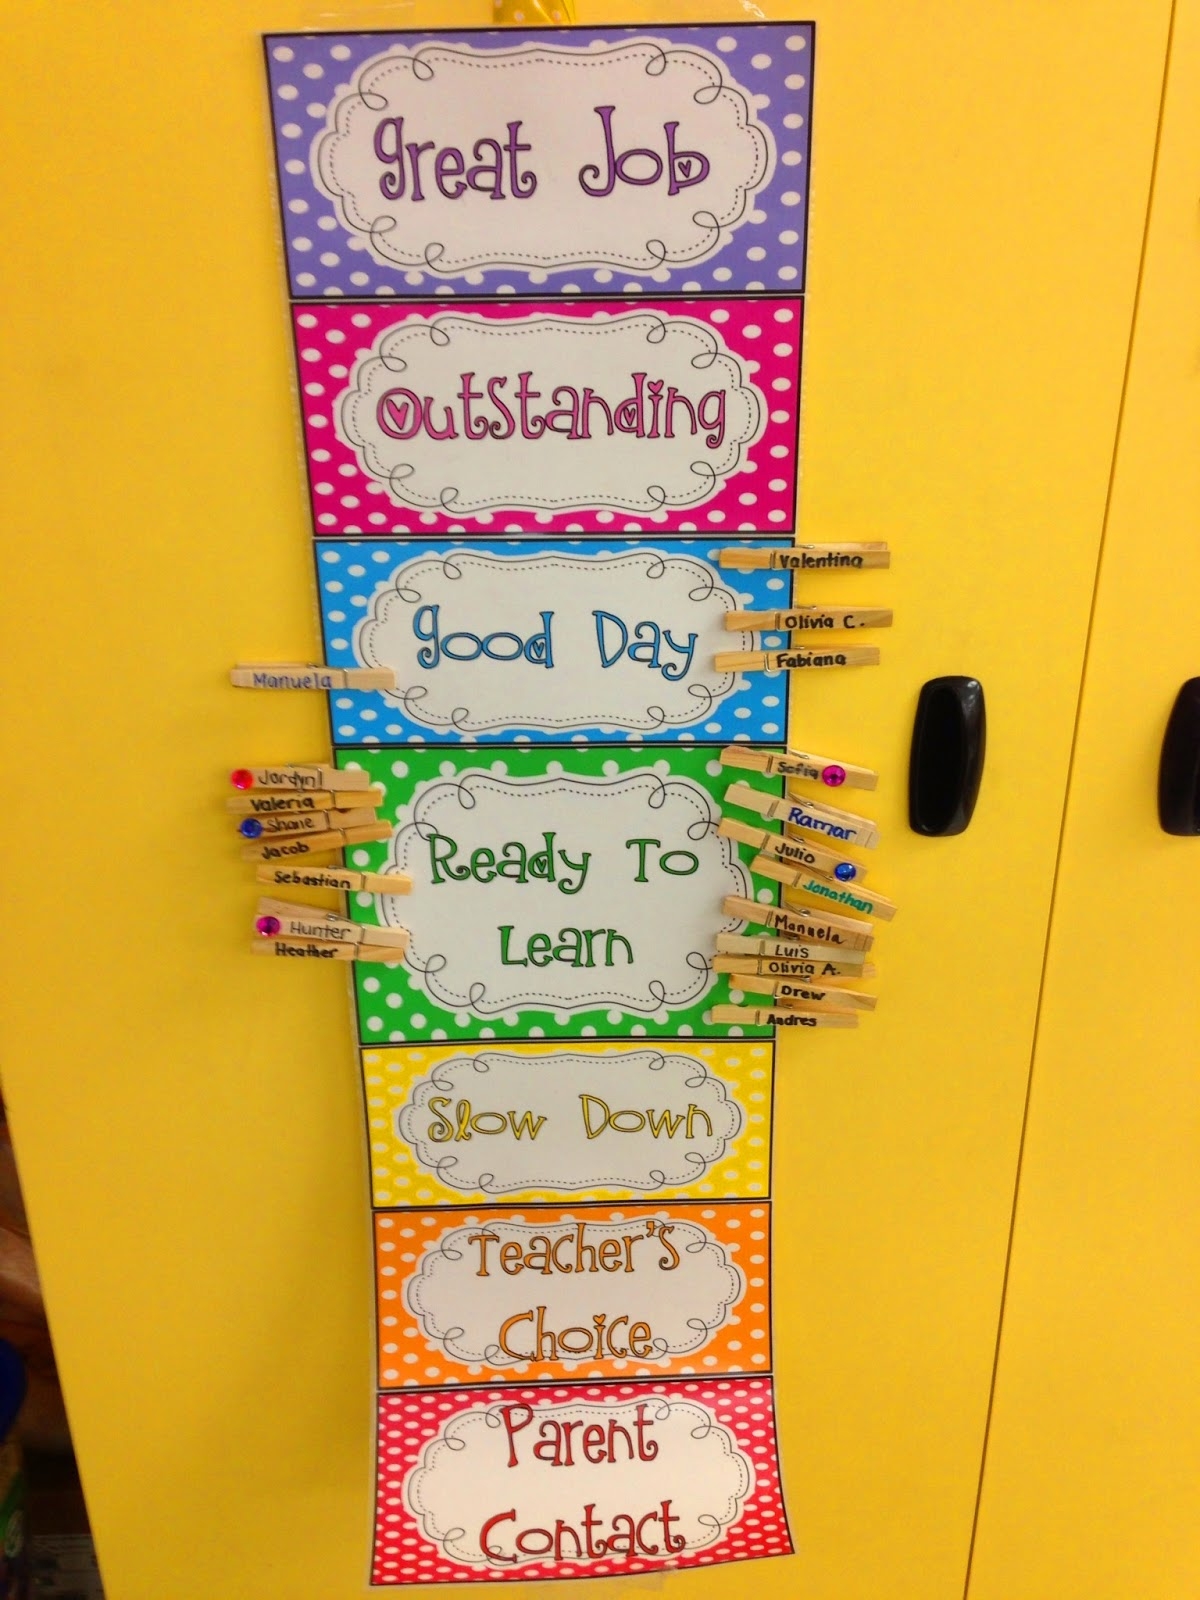 Great Job
Outstanding
Good Day
Valentina
Olivia C.
Fabiana
Manuela
Ready To
Learn
Jordyn
Valeria
Shane
Jacob
Sebastian
Hunter
Heather
Sofia
Ramar
Julio
Jonathan
Manuela
Luis
Olivia A.
Drew
Andres
Slow Down
Teacher's
Choice
Parent
Contact